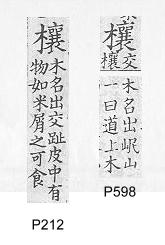 欀
木名出交趾皮中有
物如米屑之可食
P212
欀
交
欀
木名出岷山
一曰道上木
P598